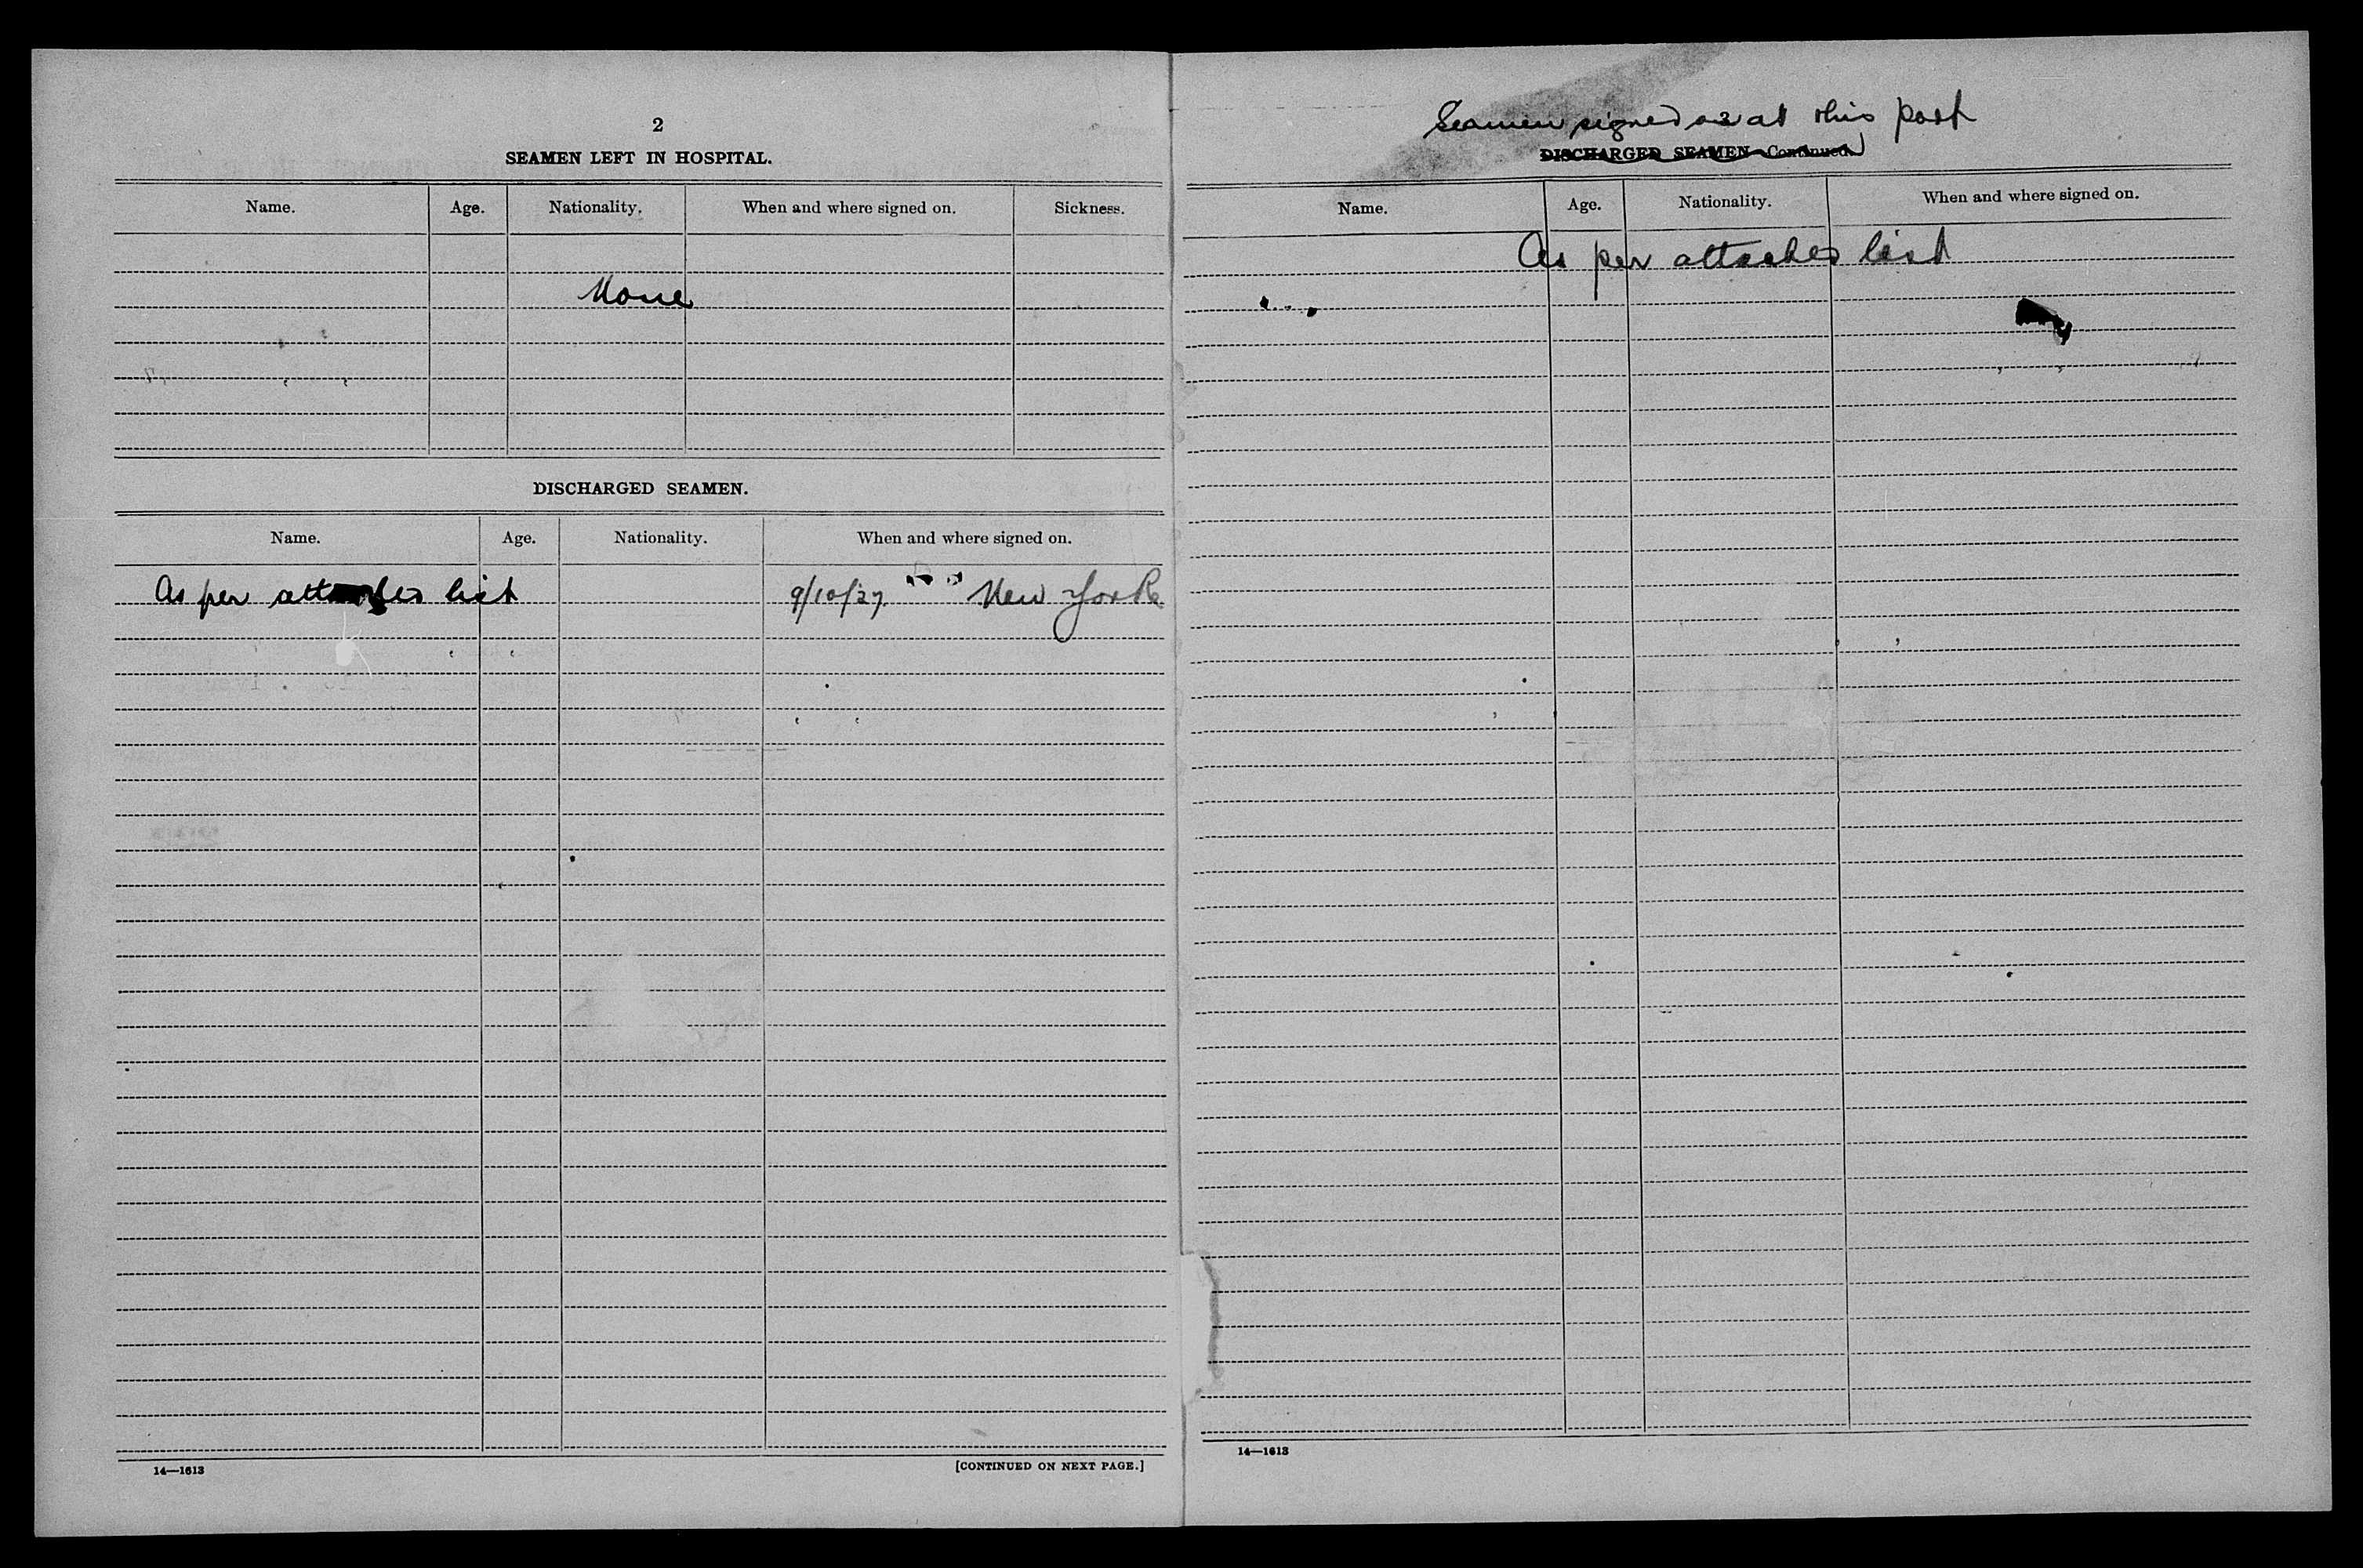 2
SEAMEN LEFT IN HOSPITAL.
Name. Age. Nationality. When and where signed on. Sickness.
None
DISCHARGED SEAMEN.
Name. Age. Nationality. When and where signed on.
As per attached list 9/10/27. " " New York
14—1613 [CONTINUED ON NEXT PAGE.]
Seamen signed on at this port
3
DISCHARGED SEAMEN—Continued.
Name. Age. Nationality. When and where signed on.
As per attached list
14—1613